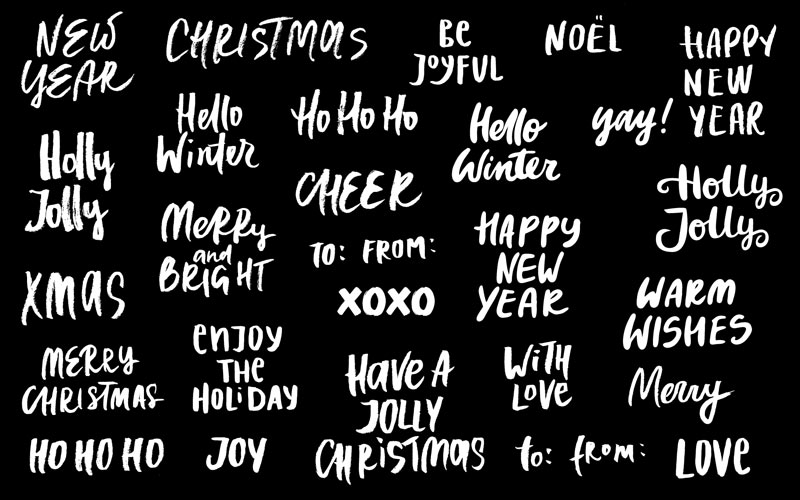 NEW
YEAR
CHRISTMAS
BE
JOYFUL
NOËL
HAPPY
NEW
YEAR
Hello
Winter
Ho Ho Ho
Hello
Winter
yay!
Holly
Jolly
CHEER
Holly
Jolly
MeRRy
and
BRIGHT
TO: FROM:
HAPPY
NEW
YEAR
XMAS
XOXO
WARM
WISHES
MERRY
CHRISTMAS
enJOY
THe
HOLiDAY
HAVe A
JOLLY
CHRiSTMAS
WiTH
LOVe
Merry
HO HO HO
JOY
to: from:
LOVe